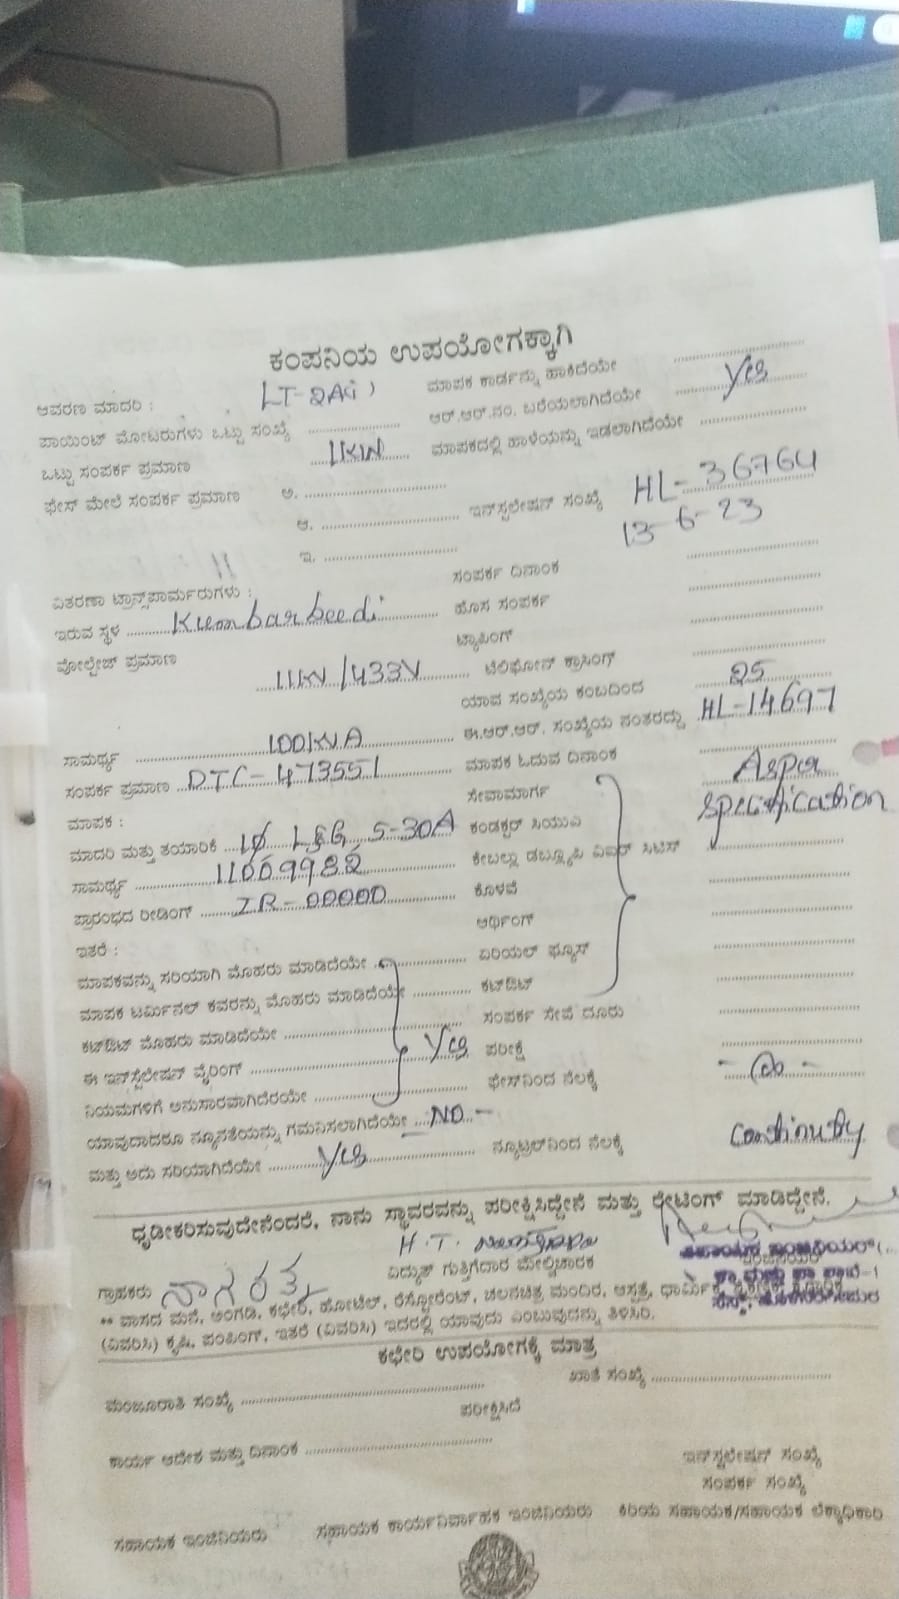 ಕಂಪನಿಯ ಉಪಯೋಗಕ್ಕಾಗಿ
ಆವರಣ ಮಾದರಿ : LT-2A(i) ಮಾಪಕ ಕಾರ್ಡನ್ನು ಹಾಕಿದೆಯೇ
ಪಾಯಿಂಟ್ ಮೋಟರುಗಳು ಒಟ್ಟು ಸಂಖ್ಯೆ ಆರ್.ಆರ್.ನಂ. ಬರೆಯಲಾಗಿದೆಯೇ Yes
ಒಟ್ಟು ಸಂಪರ್ಕ ಪ್ರಮಾಣ 1KW ಮಾಪಕದಲ್ಲಿ ಹಾಳೆಯನ್ನು ಇಡಲಾಗಿದೆಯೇ
ಫೇಸ್ ಮೇಲೆ ಸಂಪರ್ಕ ಪ್ರಮಾಣ ಅ.
ಆ. ಇನ್‌ಸ್ಟಲೇಷನ್ ಸಂಖ್ಯೆ HL-36764
ಇ. 13-6-23
ಸಂಪರ್ಕ ದಿನಾಂಕ
ವಿತರಣಾ ಟ್ರಾನ್ಸ್‌ಪಾರ್ಮರುಗಳು :
ಇರುವ ಸ್ಥಳ Kumbarbeedi ಹೊಸ ಸಂಪರ್ಕ
ವೋಲ್ಟೇಜ್ ಪ್ರಮಾಣ ಟ್ಯಾಪಿಂಗ್
11KV/433V ಟೆಲಿಫೋನ್ ಕ್ರಾಸಿಂಗ್
ಯಾವ ಸಂಖ್ಯೆಯ ಕಂಬದಿಂದ 25
ಸಾಮರ್ಥ್ಯ 100KVA ಈ.ಆರ್.ಆರ್. ಸಂಖ್ಯೆಯ ನಂತರದ್ದು HL-14697
ಸಂಪರ್ಕ ಪ್ರಮಾಣ DTC-473551 ಮಾಪಕ ಓದುವ ದಿನಾಂಕ
ಮಾಪಕ : ಸೇವಾಮಾರ್ಗ Asper
ಮಾದರಿ ಮತ್ತು ತಯಾರಿಕೆ 1Ø L&G, 5-30A ಕಂಡಕ್ಟರ್ ಸಿಯುಎ Specification
ಸಾಮರ್ಥ್ಯ 11009982 ಕೇಬಲ್ಲು ಡಬ್ಲ್ಯೂಪಿ
ಪ್ರಾರಂಭದ ರೀಡಿಂಗ್ IR-00000 ಕೊಳವೆ
ಇತರೆ : ಅರ್ಥಿಂಗ್
ಮಾಪಕವನ್ನು ಸರಿಯಾಗಿ ಮೊಹರು ಮಾಡಿದೆಯೇ ಏರಿಯಲ್ ಫ್ಯೂಸ್
ಮಾಪಕ ಟರ್ಮಿನಲ್ ಕವರನ್ನು ಮೊಹರು ಮಾಡಿದೆಯೇ ಕಟ್‌ಔಟ್
ಕಟ್‌ಔಟ್ ಮೊಹರು ಮಾಡಿದೆಯೇ ಸಂಪರ್ಕ ಸೇವೆ ದೂರು
ಈ ಇನ್‌ಸ್ಟಲೇಷನ್ ವೈರಿಂಗ್ Yes ಪರೀಕ್ಷೆ
ನಿಯಮಗಳಿಗೆ ಅನುಸಾರವಾಗಿದೆರಯೇ ಫೇಸ್‌ನಿಂದ ನೆಲಕ್ಕೆ
ಯಾವುದಾದರೂ ನ್ಯೂನತೆಯನ್ನು ಗಮನಿಸಲಾಗಿದೆಯೇ NO -
ಮತ್ತು ಅದು ಸರಿಯಾಗಿದೆಯೇ Yes ನ್ಯೂಟ್ರಲ್‌ನಿಂದ ನೆಲಕ್ಕೆ Continuty
ಧೃಡೀಕರಿಸುವುದೇನೆಂದರೆ, ನಾನು ಸ್ಥಾವರವನ್ನು ಪರೀಕ್ಷಿಸಿದ್ದೇನೆ ಮತ್ತು ರೇಟಿಂಗ್ ಮಾಡಿದ್ದೇನೆ.
H.T.
ವಿದ್ಯುತ್ ಗುತ್ತಿಗೆದಾರ ಮೇಲ್ವಿಚಾರಕ
ಗ್ರಾಹಕರು ನಾಗರತ್ನ
** ವಾಸದ ಮನೆ, ಅಂಗಡಿ, ಕಛೇರಿ, ಹೋಟೆಲ್, ರೆಸ್ಟೋರೆಂಟ್, ಚಲನಚಿತ್ರ ಮಂದಿರ, ಆಸ್ಪತ್ರೆ,
(ವಿವರಿಸಿ) ಕೃಷಿ, ಪಂಪಿಂಗ್, ಇತರೆ (ವಿವರಿಸಿ) ಇದರಲ್ಲಿ ಯಾವುದು ಎಂಬುವುದನ್ನು ತಿಳಿಸಿರಿ.
ಕಛೇರಿ ಉಪಯೋಗಕ್ಕೆ ಮಾತ್ರ
ಮಂಜೂರಾತಿ ಸಂಖ್ಯೆ ಖಾತೆ ಸಂಖ್ಯೆ
ಪರೀಕ್ಷಿಸಿದೆ
ಕಾರ್ಯ ಆದೇಶ ಮತ್ತು ದಿನಾಂಕ
ಇನ್‌ಸ್ಟಲೇಷನ್ ಸಂಖ್ಯೆ
ಸಂಪರ್ಕ ಸಂಖ್ಯೆ
ಸಹಾಯಕ ಇಂಜಿನಿಯರು ಸಹಾಯಕ ಕಾರ್ಯನಿರ್ವಾಹಕ ಇಂಜಿನಿಯರು ಕಿರಿಯ ಸಹಾಯಕ/ಸಹಾಯಕ ಲೆಕ್ಕಾಧಿಕಾರಿ